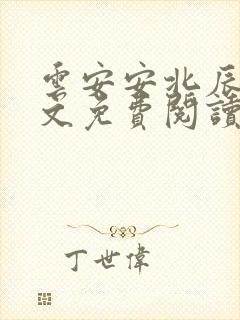 雲安安北辰
文免費閱讀
丁世偉